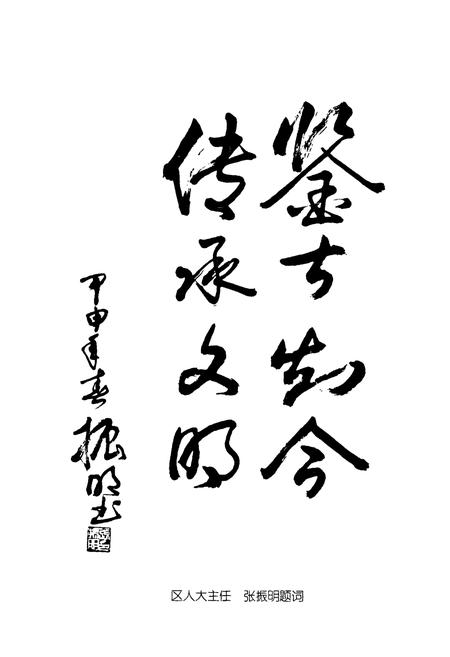 鉴古知今
传承文明
甲申年春
振明书
区人大主任 张振明题词